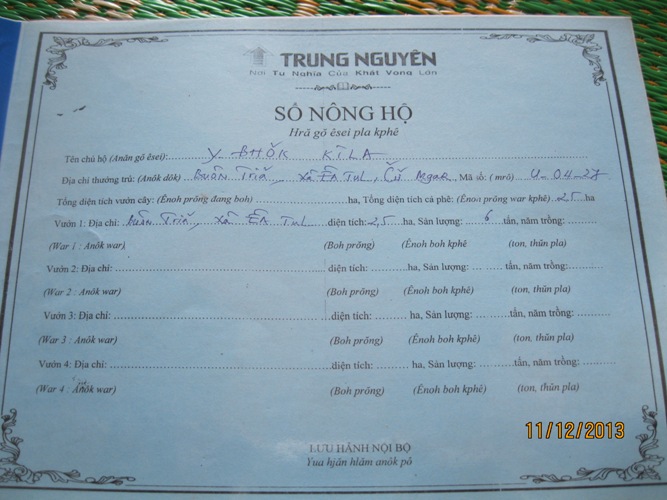 TRUNG NGUYÊN
Nơi Tụ Nghĩa Của Khát Vọng Lớn
SỔ NÔNG HỘ
Hră gŏ êsei pla kphê
Tên chủ hộ (Anăn gŏ êsei): Y_ BHŎK KTLA
Địa chỉ thường trú: (Anôk dôk) Buôn Triă, xã Ea Tul, Cư Mgar, Mã số: (mrô) U_04_27
Tổng diện tích vườn cây: (Ênoh prŏng đang boh) ha, Tổng diện tích cà phê: (Ênoh prŏng war kphê) 2,5 ha
Vườn 1: Địa chỉ: Buôn Triă, xã Ea Tul diện tích: 2,5 ha, Sản lượng: 6 tấn, năm trồng:
(War 1 : Anôk war) (Boh prŏng) (Ênoh boh kphê) (ton, thŭn pla)
Vườn 2: Địa chỉ: diện tích: ha, Sản lượng: tấn, năm trồng:
(War 2 : Anôk war) (Boh prŏng) (Ênoh boh kphê) (ton, thŭn pla)
Vườn 3: Địa chỉ: diện tích: ha, Sản lượng: tấn, năm trồng:
(War 3 : Anôk war) (Boh prŏng) (Ênoh boh kphê) (ton, thŭn pla)
Vườn 4: Địa chỉ: diện tích: ha, Sản lượng: tấn, năm trồng:
(War 4 : Anôk war) (Boh prŏng) (Ênoh boh kphê) (ton, thŭn pla)
LƯU HÀNH NỘI BỘ
Yua hjăn hlăm anôk pô
11/12/2013